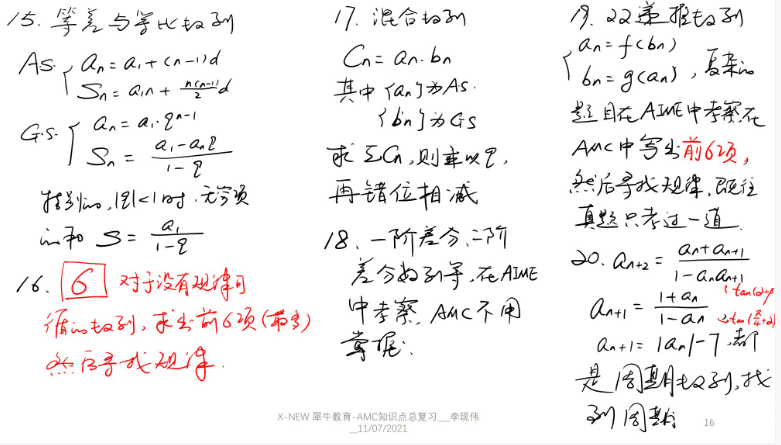 15. 等差与等比数列
As. { an = a1 + (n-1)d
Sn = a1n + n(n-1)/2 d
G.S. { an = a1·q^(n-1)
Sn = (a1-anq)/(1-q)
特别的, |q|<1时, 无穷项
的和 S = a1/(1-q)
16. 6 对于没有规律可
循的数列, 求出前6项(最多)
然后寻找规律.
17. 混合数列
Cn = an·bn
其中{an}为As.
{bn}为GS
求ΣCn, 则乘以q,
再错位相减
18. 一阶差分、二阶
差分数列等, 在AIME
中考察, AMC不用
掌握.
19. 22递推数列
{ an = f(bn)
bn = g(an) , 复杂的
题目在AIME中考察在
AMC中写出前6项,
然后寻找规律. 既往
真题只考过一道.
20. an+2 = (an+an+1)/(1-anan+1)
an+1 = (1+an)/(1-an)
an+1 = |an|-7, 都
是周期数列, 找
到周期
X-NEW 犀牛教育-AMC知识点总复习__李现伟
__11/07/2021
16